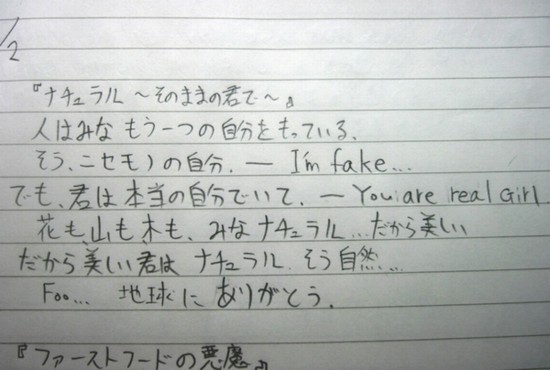 1/2
『ナチュラル～そのままの君で～』
人はみなもう一つの自分をもっている、
そう、ニセモノの自分. ー I'm fake...
でも、君は本当の自分でいて. ー You are real Girl
花も、山も、木も、みなナチュラル...だから美しい
だから美しい君はナチュラル. そう自然...
Foo... 地球にありがとう.
『ファーストフードの悪魔』